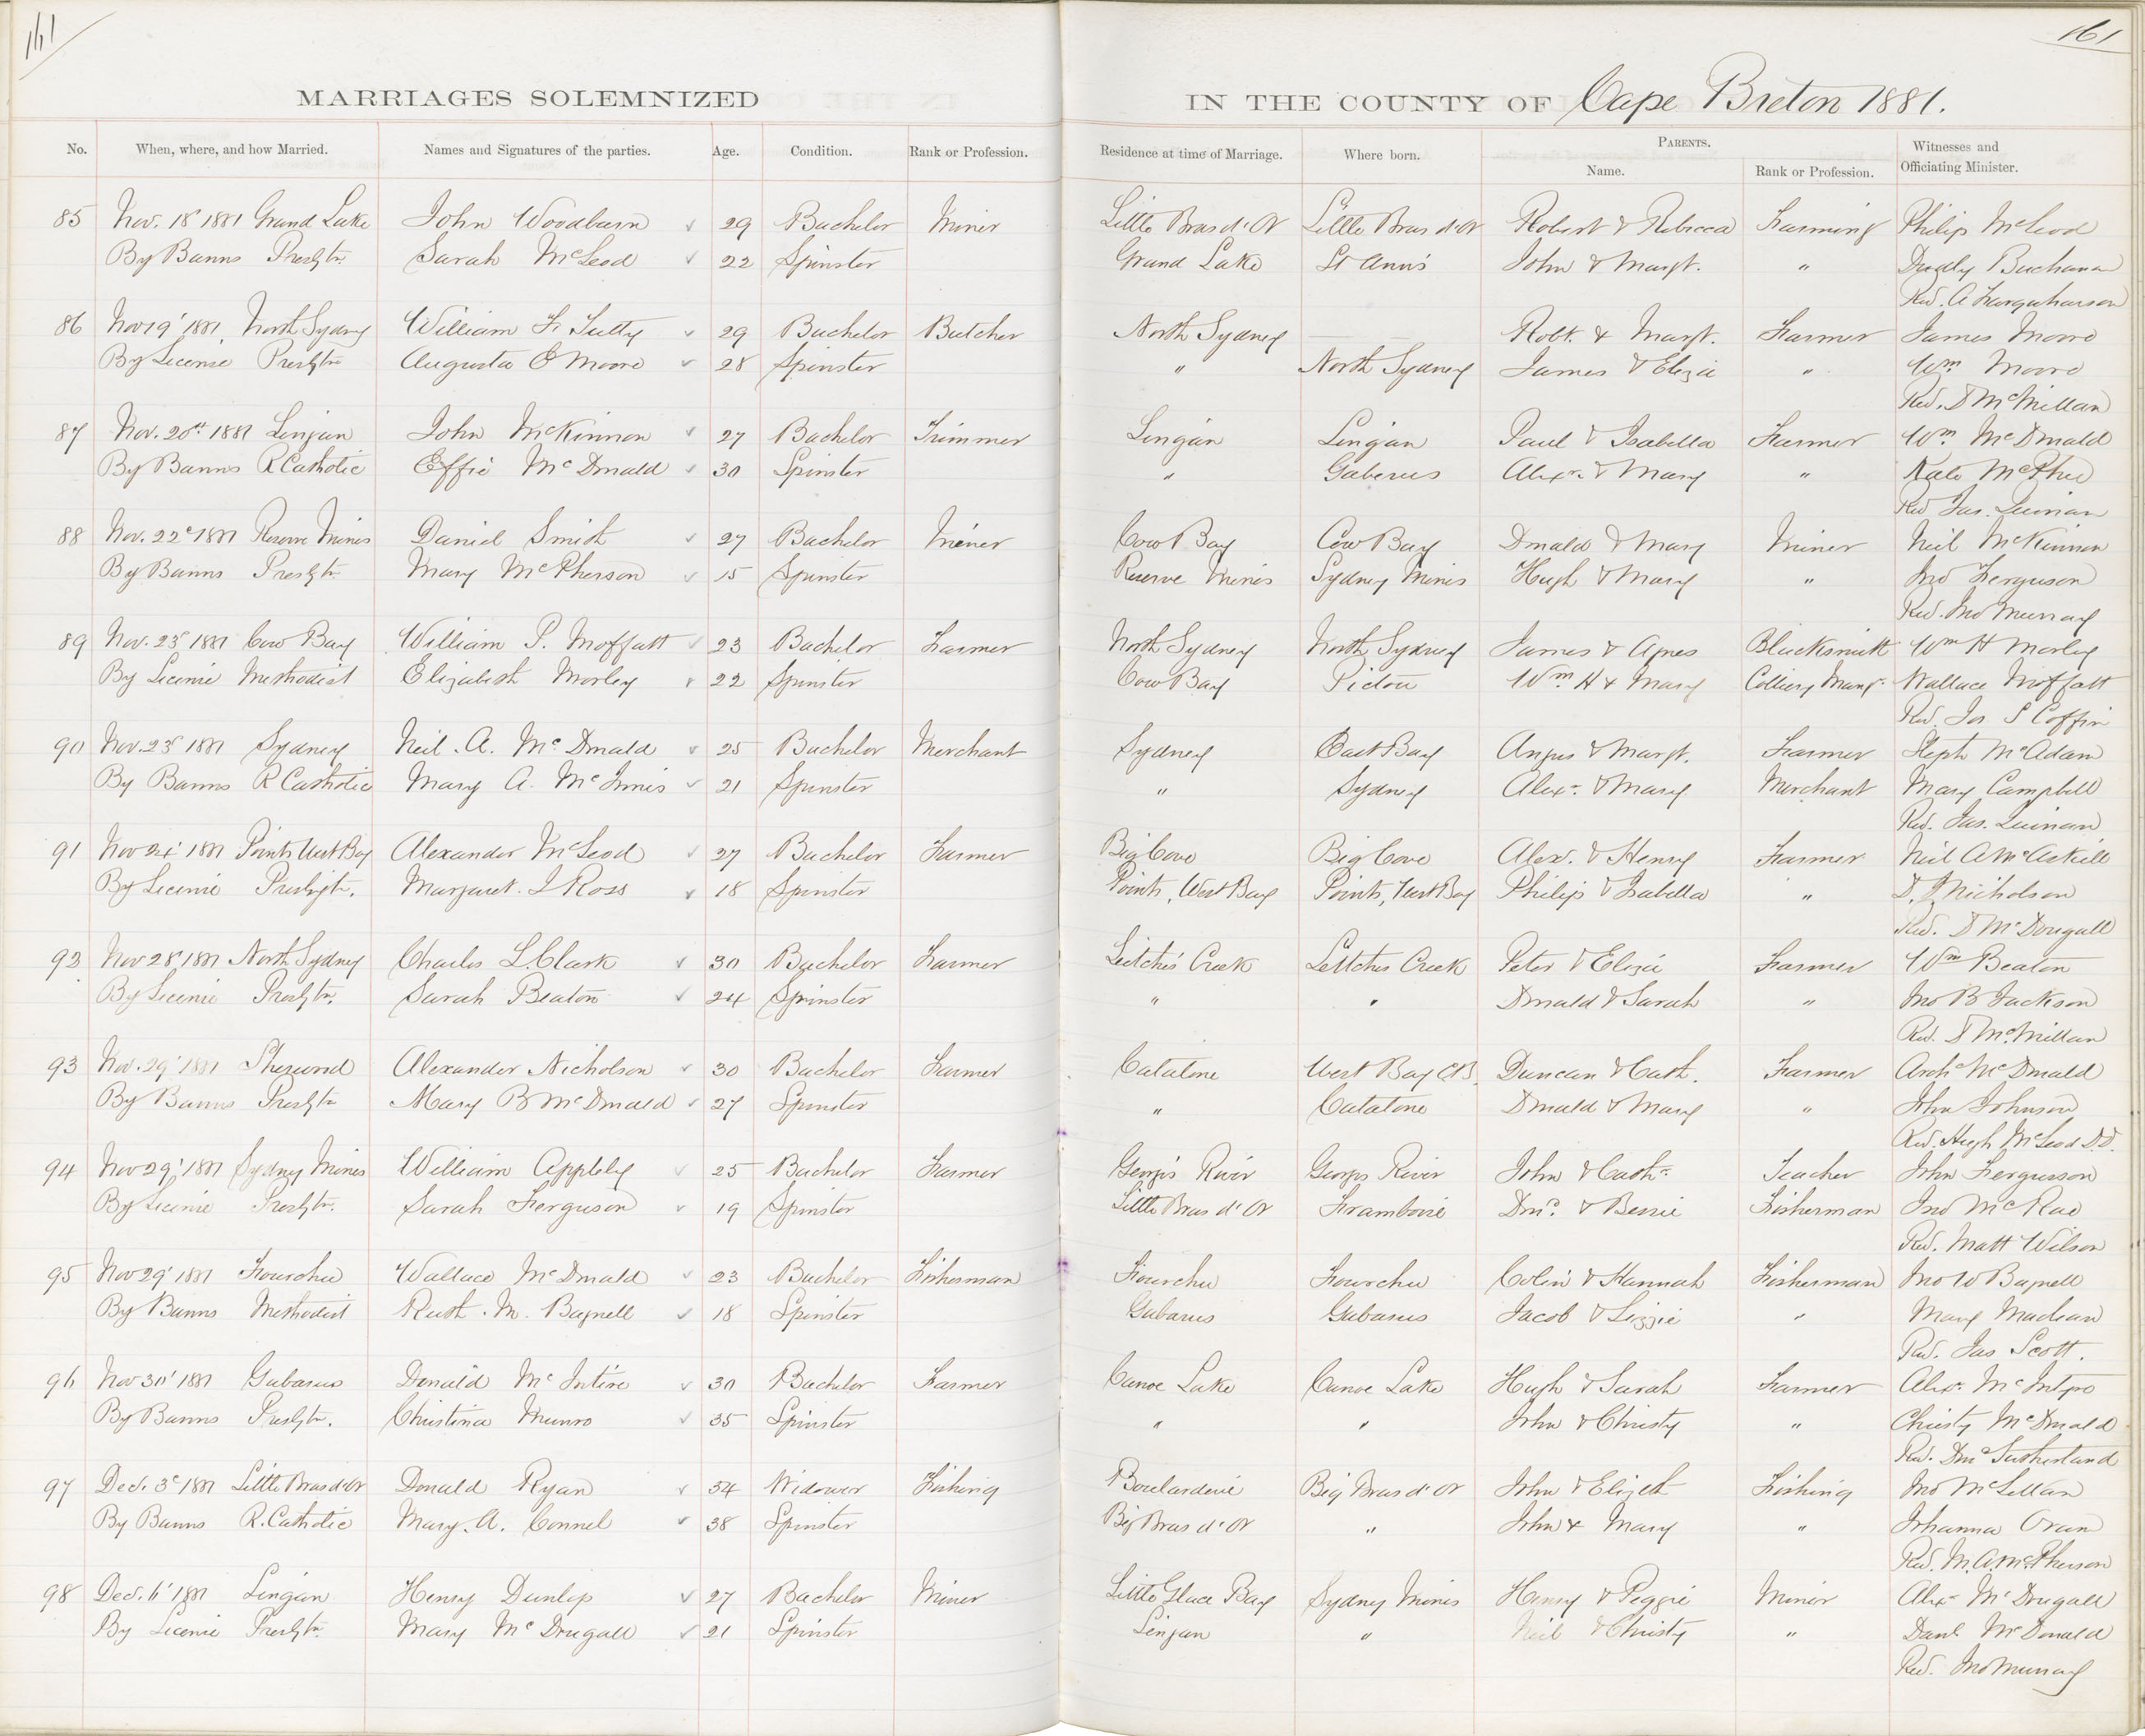 161
161
MARRIAGES SOLEMNIZED IN THE COUNTY OF Cape Breton 1881.
No. When, where, and how Married. Names and Signatures of the parties. Age. Condition. Rank or Profession. Residence at time of Marriage. Where born. PARENTS. Name. Rank or Profession. Witnesses and Officiating Minister.
85 Nov. 18' 1881 Grand Lake John Woodburn 29 Bachelor Miner Little Bras d'Or Little Bras d'Or Robert & Rebecca Farming Philip McLeod
By Banns Presbytn. Sarah McLeod 22 Spinster Grand Lake St Ann's John & Margt. " Buchanan
Rev. A Farquharson
86 Nov 19' 1881 North Sydney William F. 29 Bachelor Butcher North Sydney Robt. & Margt. Farmer James Moore
By License Presbytn Augusta O Moore 28 Spinster " North Sydney James & Eliza " Wm Moore
Rev. D McMillan
87 Nov. 20th 1881 Lingan John McKinnon 27 Bachelor Trimmer Lingan Lingan Paul & Isabella Farmer Wm. McDonald
By Banns R Catholic Effie McDonald 30 Spinster " Gabarus Alexr. & Mary " Kate McPhee
Rev Jas. Quinan
88 Nov. 22d 1881 Reserve Mines Daniel Smith 27 Bachelor Miner Cow Bay Cow Bay Donald & Mary Miner Neil McKinnon
By Banns Presbytn Mary McPherson 15 Spinster Reserve Mines Sydney Mines Hugh & Mary " Jno Ferguson
Rev. Jno Murray
89 Nov. 23d 1881 Cow Bay William P. Moffatt 23 Bachelor Farmer North Sydney North Sydney James & Agnes Blacksmith Wm H Morley
By License Methodist Elizabeth Morley 22 Spinster Cow Bay Pictou Wm H & Mary Colliery Mangr. Wallace Moffatt
Rev. Jos S Coffin
90 Nov. 23d 1881 Sydney Neil. A. McDonald 25 Bachelor Merchant Sydney East Bay Angus & Margt. Farmer Steph McAdam
By Banns R Catholic Mary A. McInnis 21 Spinster " Sydney Alexr. & Mary Merchant Mary Campbell
Rev. Jas. Quinan
91 Nov 24' 1881 Points West Bay Alexander McLeod 27 Bachelor Farmer Big Cove Big Cove Alex. & Henry Farmer Neil A McAskill
By License Presbytn. Margaret. I Ross 18 Spinster Points, West Bay Points, West Bay Philip & Isabella " D. Nicholson
Rev. D McDougall
92 Nov 28' 1881 North Sydney Charles L. Clark 30 Bachelor Farmer Leitche's Creek Leitches Creek Peter & Eliza Farmer Wm Beaton
By License Presbytn. Sarah Beaton 24 Spinster " " Donald & Sarah " Jno B Jackson
Rev. D McMillan
93 Nov. 29' 1881 Sherwood Alexander Nicholson 30 Bachelor Farmer Catalone West Bay CB. Duncan & Cath. Farmer Archd McDonald
By Banns Presbytn Mary B McDonald 27 Spinster " Catalone Donald & Mary " John Johnson
Rev. Hugh McLeod D.D.
94 Nov 29' 1881 Sydney Mines William Appleby 25 Bachelor Farmer George's River Georges River John & Cathn. Teacher John Fergusson
By License Presbytn. Sarah Ferguson 19 Spinster Little Bras d'Or Framboise Dond. & Bessie Fisherman Jno McRae
Rev. Matt Wilson
95 Nov 29' 1881 Fourchu Wallace McDonald 23 Bachelor Fisherman Fourchu Fourchu Colin & Hannah Fisherman Jno W Bagnell
By Banns Methodist Ruth. M. Bagnell 18 Spinster Gabarus Gabarus Jacob & Lizzie " Mary
Rev. Jas Scott.
96 Nov 30' 1881 Gabarus Donald McIntire 30 Bachelor Farmer Canoe Lake Canoe Lake Hugh & Sarah Farmer Alexr.
By Banns Presbytn. Christina Munro 35 Spinster " " John & Christy " Christy McDonald
Rev. Dnd Sutherland
97 Dec. 3d 1881 Little Bras d'Or Donald Ryan 54 Widower Fishing Boulardrie Big Bras d'Or John & Elizth Fishing Jno McLellan
By Banns R. Catholic Mary. A. Connel 38 Spinster Big Bras d'Or " John & Mary " Johanna Oram
Rev. M. A. McPherson
98 Dec. 6' 1881 Lingan Henry Dunlop 27 Bachelor Miner Little Glace Bay Sydney Mines Henry & Peggie Miner Alexr McDougall
By License Presbytn. Mary McDougall 21 Spinster Lingan " Neil & Christy " Danl McDonald
Rev. Jno Murray